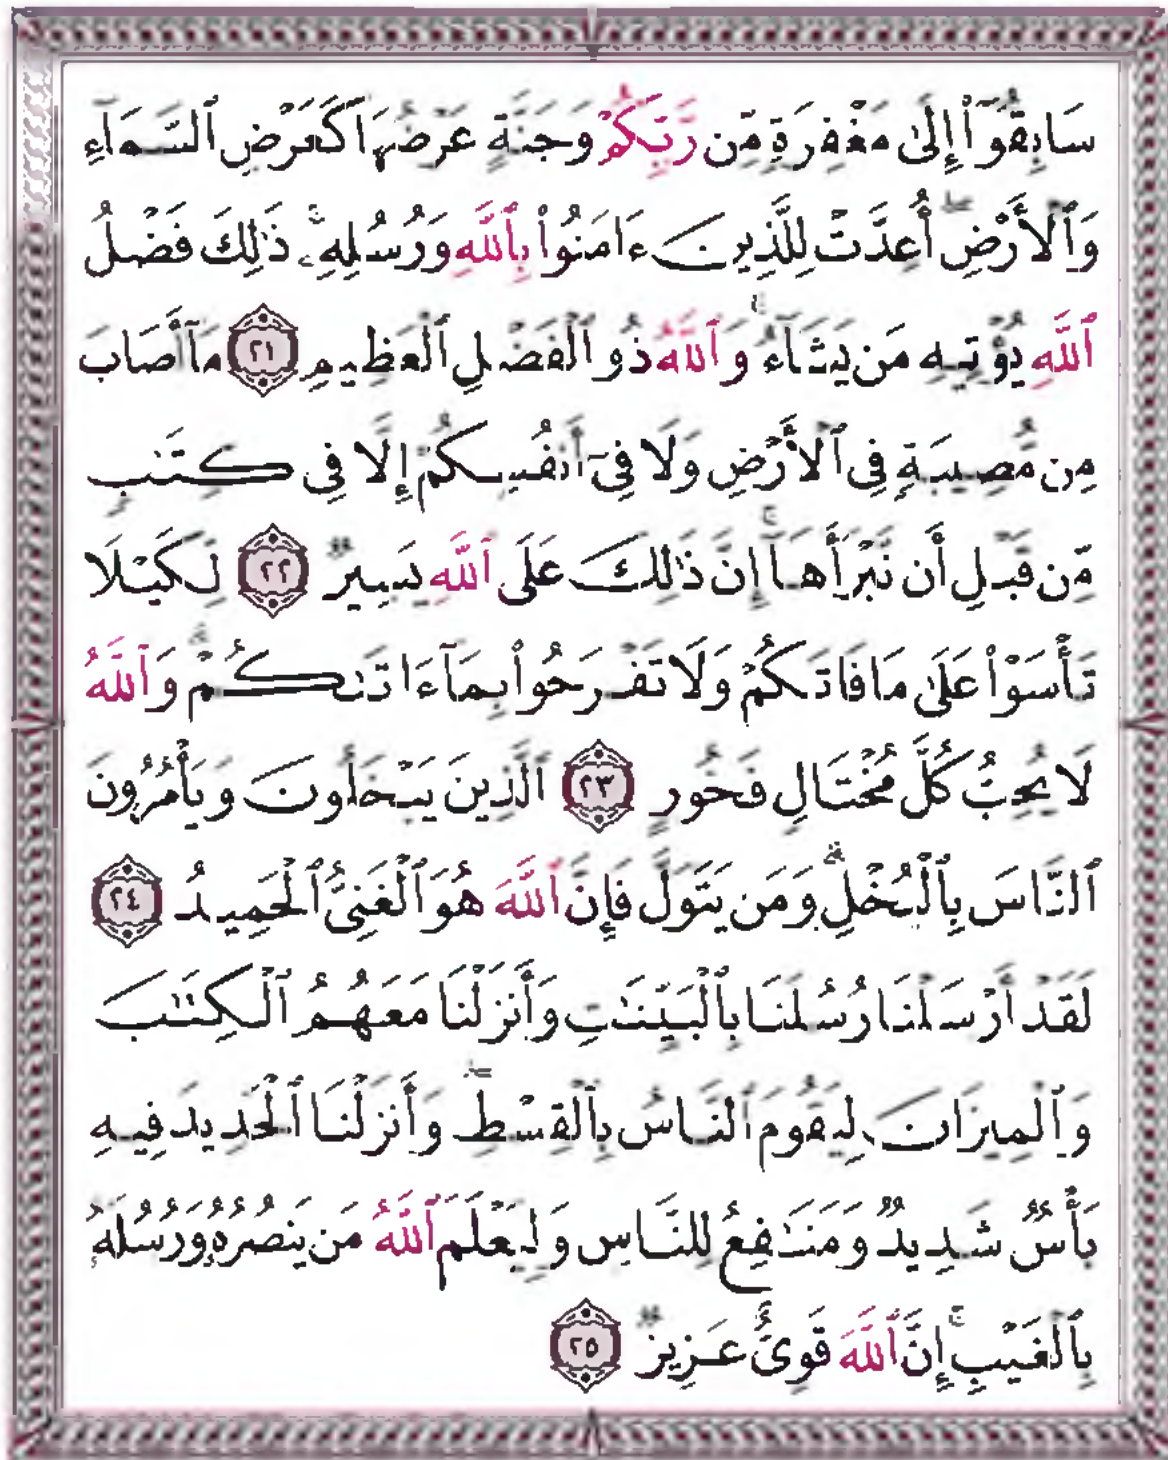 سَابِقُوٓا۟ إِلَىٰ مَغْفِرَةٍ مِّن رَّبِّكُمْ وَجَنَّةٍ عَرْضُهَا كَعَرْضِ ٱلسَّمَآءِ
وَٱلْأَرْضِ أُعِدَّتْ لِلَّذِينَ ءَامَنُوا۟ بِٱللَّهِ وَرُسُلِهِۦ ۚ ذَٰلِكَ فَضْلُ
ٱللَّهِ يُؤْتِيهِ مَن يَشَآءُ ۚ وَٱللَّهُ ذُو ٱلْفَضْلِ ٱلْعَظِيمِ ٢١ مَآ أَصَابَ
مِن مُّصِيبَةٍ فِى ٱلْأَرْضِ وَلَا فِىٓ أَنفُسِكُمْ إِلَّا فِى كِتَٰبٍ
مِّن قَبْلِ أَن نَّبْرَأَهَآ ۚ إِنَّ ذَٰلِكَ عَلَى ٱللَّهِ يَسِيرٌ ٢٢ لِّكَيْلَا
تَأْسَوْا۟ عَلَىٰ مَا فَاتَكُمْ وَلَا تَفْرَحُوا۟ بِمَآ ءَاتَىٰكُمْ ۗ وَٱللَّهُ
لَا يُحِبُّ كُلَّ مُخْتَالٍ فَخُورٍ ٢٣ ٱلَّذِينَ يَبْخَلُونَ وَيَأْمُرُونَ
ٱلنَّاسَ بِٱلْبُخْلِ ۗ وَمَن يَتَوَلَّ فَإِنَّ ٱللَّهَ هُوَ ٱلْغَنِىُّ ٱلْحَمِيدُ ٢٤
لَقَدْ أَرْسَلْنَا رُسُلَنَا بِٱلْبَيِّنَٰتِ وَأَنزَلْنَا مَعَهُمُ ٱلْكِتَٰبَ
وَٱلْمِيزَانَ لِيَقُومَ ٱلنَّاسُ بِٱلْقِسْطِ ۖ وَأَنزَلْنَا ٱلْحَدِيدَ فِيهِ
بَأْسٌ شَدِيدٌ وَمَنَٰفِعُ لِلنَّاسِ وَلِيَعْلَمَ ٱللَّهُ مَن يَنصُرُهُۥ وَرُسُلَهُۥ
بِٱلْغَيْبِ ۚ إِنَّ ٱللَّهَ قَوِىٌّ عَزِيزٌ ٢٥